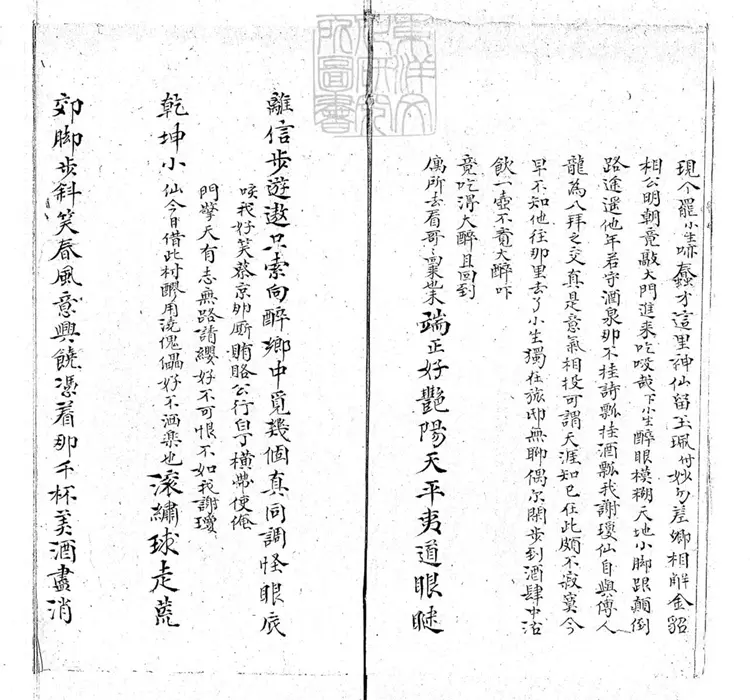 東洋文化研究所圖書
現今罷小生蠢才這里神仙留玉珮付妙差卿相解金貂
相公明朝竟敲大門進來吃哉下小生醉眼模糊天地小脚跟顛倒
路途遙他年若守酒泉那不挂詩瓢挂酒瓢我謝瓊仙自與傅人
龍為八拜之交真是意氣相投可謂天涯知己住此頗不寂寞今
早不知他往那里去了小生獨住旅邸無聊偶尔閑步到酒肆中沽
飲一壺不覺大醉吓
竟吃得大醉且回到
寓所去看哥〻來也未端正好艷陽天平夷道眼瞇
離信步遊遨只索向醉鄉中覓幾個真同調怪眼底
咳我好笑蔡京那厮賄賂公行白丁橫帶使俺
門擎天有志無路請纓好不可恨不如我謝瓊
乾坤小仙今日借此村醪用澆傀儡好不洒樂也滾繡球走荒
郊脚步斜笑春風意興饒憑着那千杯美酒盡消